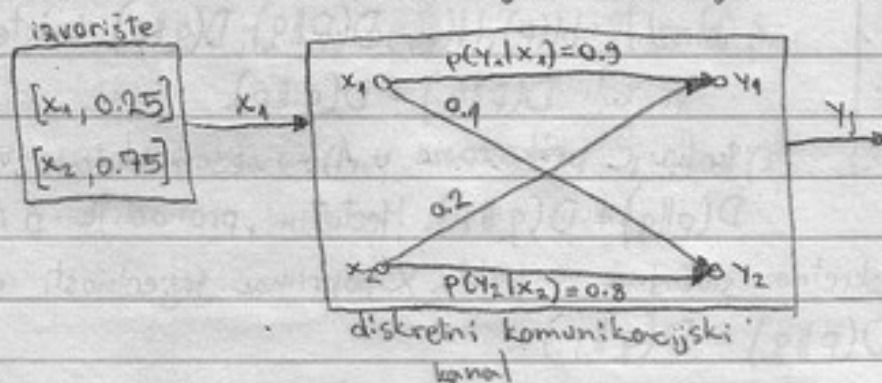 izvorište
[x₁, 0.25]
[x₂, 0.75]
x₁
p(y₁|x₁)=0.9
x₁
y₁
0.1
0.2
x₂
y₂
p(y₂|x₂)=0.8
yⱼ
diskretni komunikacijski
kanal